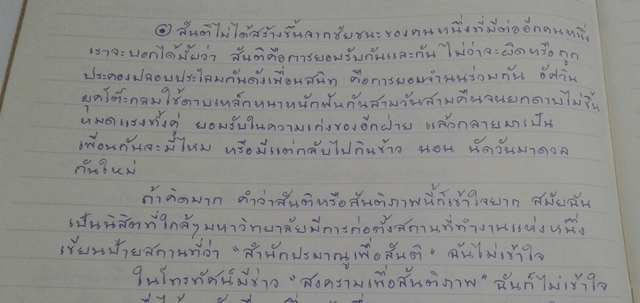 ๑ สันติไม่ได้สร้างขึ้นจากชัยชนะของคนหนึ่งที่มีต่ออีกคนหนึ่ง
เราจะบอกได้มั้ยว่า สันติคือการยอมรับกันและกัน ไม่ว่าจะผิดหรือถูก
ประคองปลอบประโลมกันดังเพื่อนสนิท คือการยอมจำนนร่วมกัน อัศวิน
ยุคโต๊ะกลมใช้ดาบเหล็กหนาหนักฟันกันสามวันสามคืนจนยกดาบไม่ขึ้น
หมดแรงทั้งคู่ ยอมรับในความเก่งของอีกฝ่าย แล้วกลายมาเป็น
เพื่อนกันจะมีไหม หรือมีแต่กลับไปกินข้าว นอน นัดวันมาดวล
กันใหม่
ถ้าคิดมาก คำว่าสันติหรือสันติภาพนี้ก็เข้าใจยาก สมัยฉัน
เป็นนิสิตที่ใกล้ๆ มหาวิทยาลัยมีการก่อตั้งสถานที่ทำงานแห่งหนึ่ง
เขียนป้ายสถานที่ว่า "สำนักปรมาณูเพื่อสันติ" ฉันไม่เข้าใจ
ในโทรทัศน์มีข่าว "สงครามเพื่อสันติภาพ" ฉันก็ไม่เข้าใจ